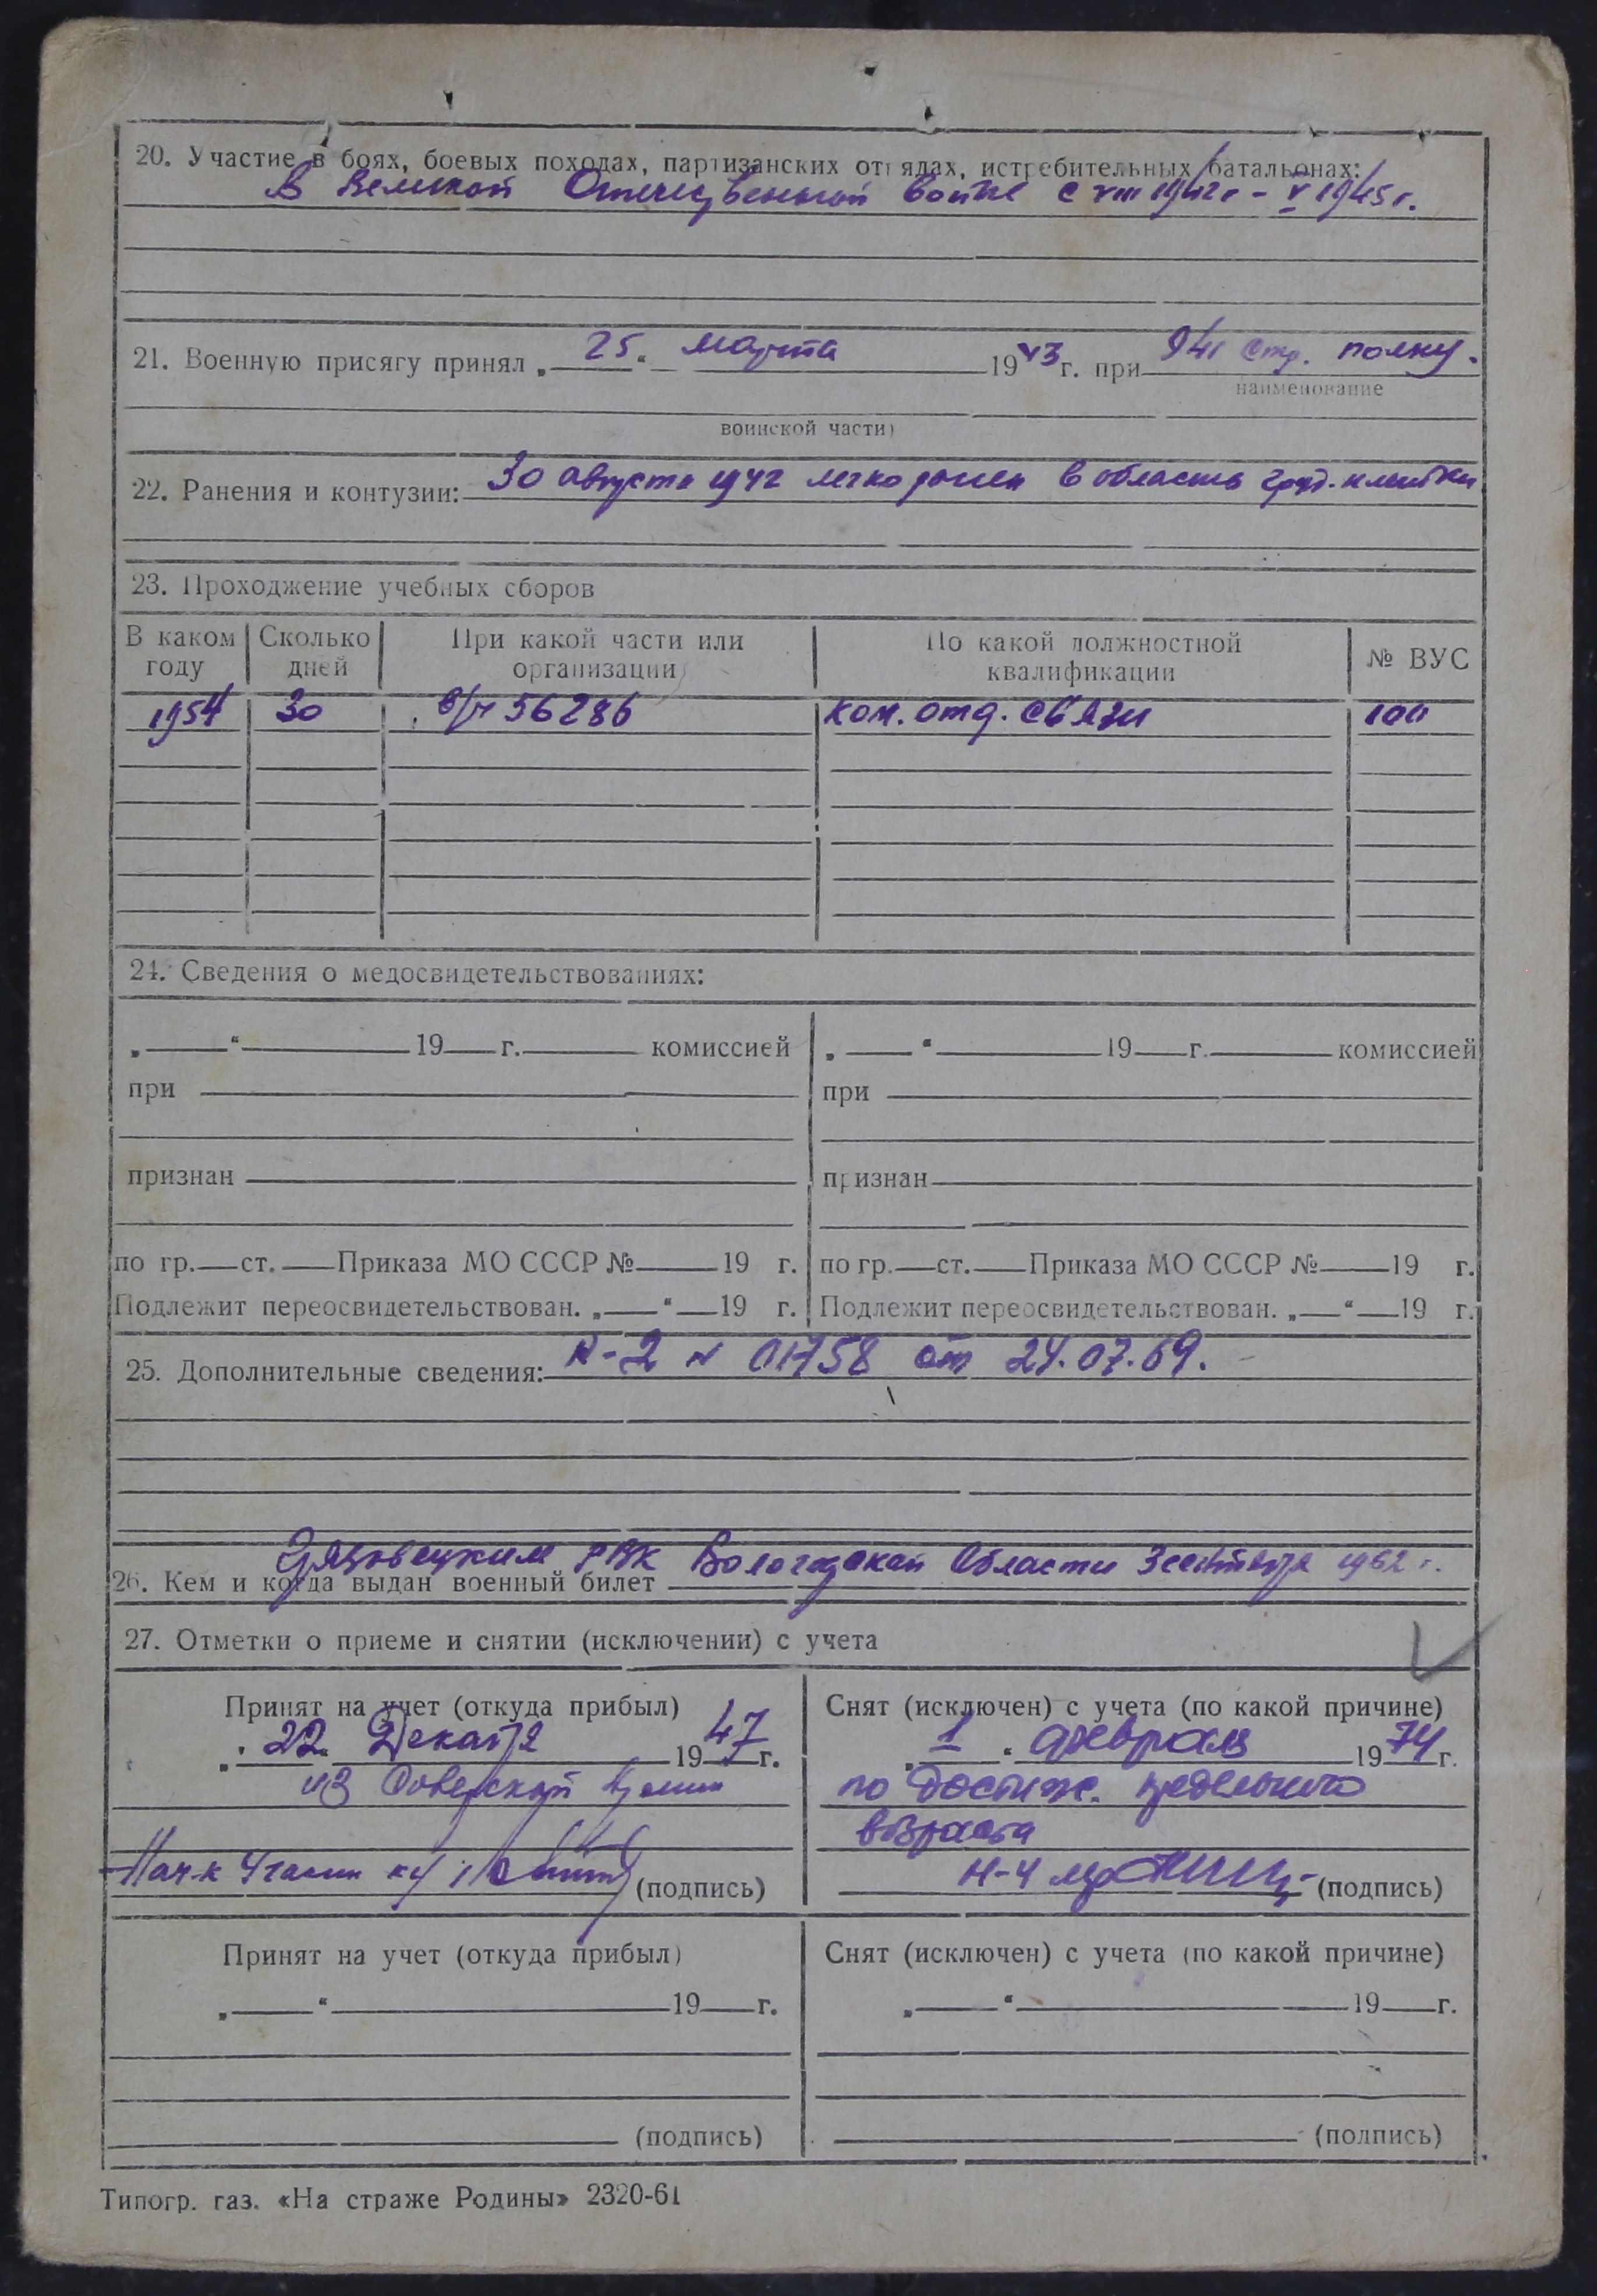 20. Участие в боях, боевых походах, партизанских отрядах, истребительных батальонах:
В Великой Отечественной войне с VIII 1942г - V 1945г.
21. Военную присягу принял „25“ марта 1943г. при 941 стр. полку.
наименование
воинской части)
22. Ранения и контузии: 30 августа 1942 легко ранен в область груд. клетки
23. Проходжение учебных сборов
В каком году Сколько дней При какой части или организации По какой должностной квалификации № ВУС
1954 30 в/ч 56286 ком. отд. связи 100
24. Сведения о медосвидетельствованиях:
„ “ 19 г. комиссией „ “ 19 г. комиссией
при при
признан признан
по гр. ст. Приказа МО СССР № 19 г. по гр. ст. Приказа МО СССР № 19 г.
Подлежит переосвидетельствован. „ “ 19 г. Подлежит переосвидетельствован. „ “ 19 г.
25. Дополнительные сведения: К-2 N 01758 от 24.07.69.
Грязовецким РВК Вологодской области 3 сентября 1962 г.
26. Кем и когда выдан военный билет
27. Отметки о приеме и снятии (исключении) с учета
Принят на учет (откуда прибыл) Снят (исключен) с учета (по какой причине)
„22“ Декабря 1947г. „1“ февраля 1974г.
из Советской Армии по достиж. предельного
возраста
Нач-к 4 части (подпись) Н-4 (подпись)
Принят на учет (откуда прибыл) Снят (исключен) с учета (по какой причине)
„ “ 19 г. „ “ 19 г.
(подпись) (подпись)
Типогр. газ. «На страже Родины» 2320-61